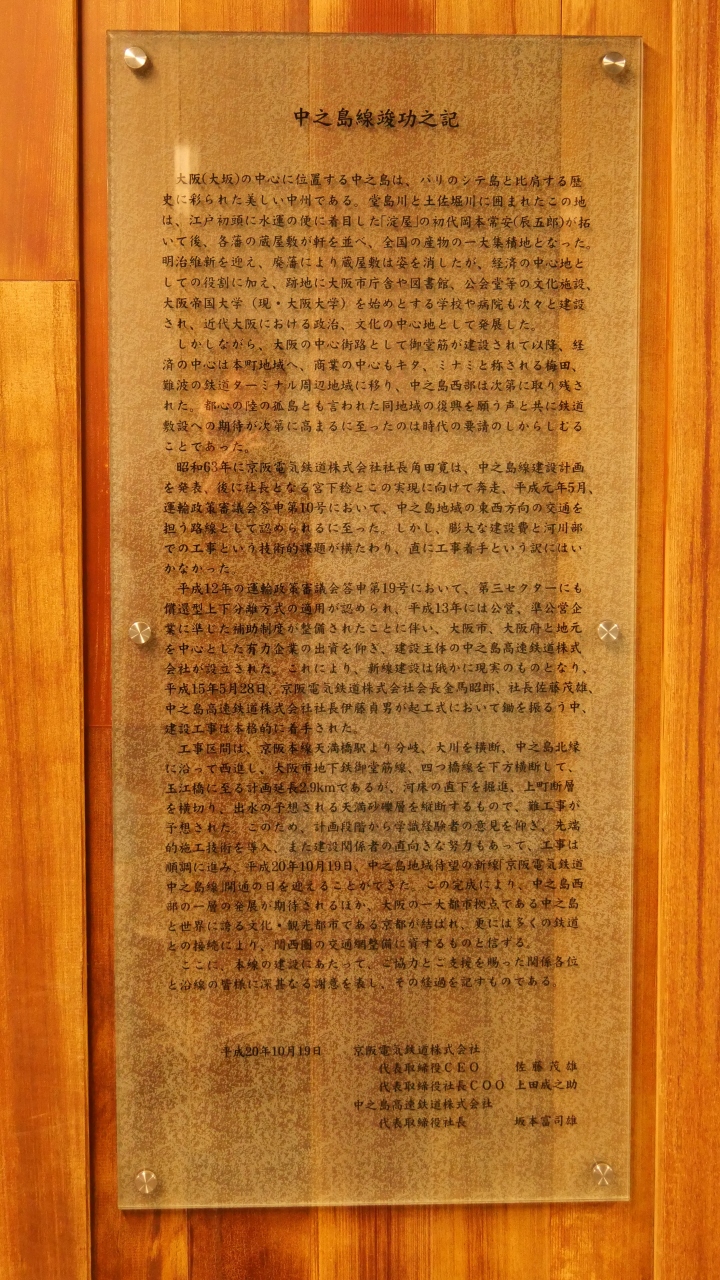 中之島線竣功之記
大阪(大坂)の中心に位置する中之島は、パリのシテ島と比肩する歴
史に彩られた美しい中州である。堂島川と土佐堀川に囲まれたこの地
は、江戸初頭に水運の便に着目した「淀屋」の初代岡本常安(辰五郎)が拓
いて後、各藩の蔵屋敷が軒を並べ、全国の産物の一大集積地となった。
明治維新を迎え、廃藩により蔵屋敷は姿を消したが、経済の中心地と
しての役割に加え、跡地に大阪市庁舎や図書館、公会堂等の文化施設、
大阪帝国大学（現・大阪大学）を始めとする学校や病院も次々と建設
され、近代大阪における政治、文化の中心地として発展した。
しかしながら、大阪の中心街路として御堂筋が建設されて以降、経
済の中心は本町地域へ、商業の中心もキタ、ミナミと称される梅田、
難波の鉄道ターミナル周辺地域に移り、中之島西部は次第に取り残さ
れた。都心の陸の孤島とも言われた同地域の復興を願う声と共に鉄道
敷設への期待が次第に高まるに至ったのは時代の要請のしからしむる
ことであった。
昭和63年に京阪電気鉄道株式会社社長角田寛は、中之島線建設計画
を発表、後に社長となる宮下稔とこの実現に向けて奔走、平成元年5月、
運輸政策審議会答申第10号において、中之島地域の東西方向の交通を
担う路線として認められるに至った。しかし、膨大な建設費と河川部
での工事という技術的課題が横たわり、直に工事着手という訳にはい
かなかった
平成12年の運輸政策審議会答申第19号において、第三セクターにも
償還型上下分離方式の適用が認められ、平成13年には公営、準公営企
業に準じた補助制度が整備されたことに伴い、大阪市、大阪府と地元
を中心とした有力企業の出資を仰ぎ、建設主体の中之島高速鉄道株式
会社が設立された。これにより、新線建設は俄かに現実のものとなり、
平成15年5月28日、京阪電気鉄道株式会社会長金馬昭郎、社長佐藤茂雄、
中之島高速鉄道株式会社社長伊藤貞男が起工式において鋤を振るう中、
建設工事は本格的に着手された。
工事区間は、京阪本線天満橋駅より分岐、大川を横断、中之島北縁
に沿って西進し、大阪市地下鉄御堂筋線、四つ橋線を下方横断して、
玉江橋に至る計画延長2.9kmであるが、河床の直下を掘進、上町断層
を横切り、出水の予想される天満砂礫層を縦断するもので、難工事が
予想された。このため、計画段階から学識経験者の意見を仰ぎ、先端
的施工技術を導入、また建設関係者の直向きな努力もあって、工事は
順調に進み、平成20年10月19日、中之島地域待望の新線「京阪電気鉄道
中之島線」開通の日を迎えることができた。この完成により、中之島西
部の一層の発展が期待されるほか、大阪の一大都市拠点である中之島
と世界に誇る文化・観光都市である京都が結ばれ、更には多くの鉄道
との接続により、関西圏の交通網整備に資するものと信ずる。
ここに、本線の建設にあたって、ご協力とご支援を賜った関係各位
と沿線の皆様に深甚なる謝意を表し、その経過を記すものである。
平成20年10月19日　京阪電気鉄道株式会社
代表取締役CEO　佐藤茂雄
代表取締役社長COO　上田成之助
中之島高速鉄道株式会社
代表取締役社長　坂本富司雄